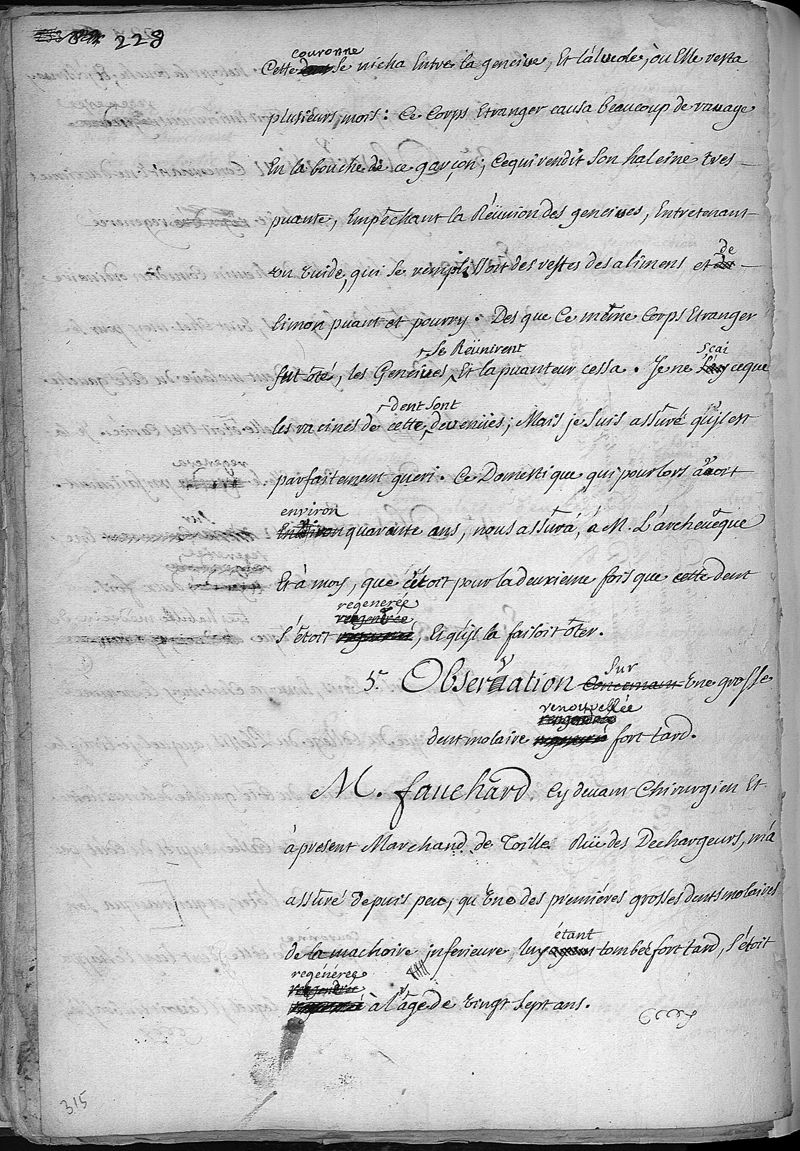 228
couronne
Cette se nicha Entre la gencive, Et l'alveole, où Elle resta
plusieurs mois : Ce Corps Etranger causa beaucoup de ravage
En la bouche de ce garçon ; ce qui rendit Son haleine tres-
puante, Empêchant la Réünion des gencives, Entretenant
un Vuide, qui se remplissoit des restes des alimens et de
Limon puant et pourry. Des que Ce même Corps Etranger
se Réünirent sçai
fut ôté, les Gencives, Et la puanteur cessa. Je ne ce que
dent sont
les racines de cette devenües ; Mais je suis assuré qu'il est
parfaitement gueri. Ce Domestique, qui pour lors avoit
environ
quarante ans, nous assura, à M. L'archevêque
Et à moy, que c'étoit pour la deuxieme fois que cette dent
regenerée
s'étoit , Et qu'il la faisoit ôter.
5. Observation Sur Une grosse
renouvellée
dent molaire fort tard.
M. fauchard, Cy devant Chirurgien Et
à present Marchand de Toille Rüe des Dechargeurs, m'a
assuré depuis peu, qu'Une des premiéres grosses dents molaires
étant
de la machoire inferieure, luy tombée fort tard, s'étoit
regénérée
à l'âge de Vingt Sept ans.
315